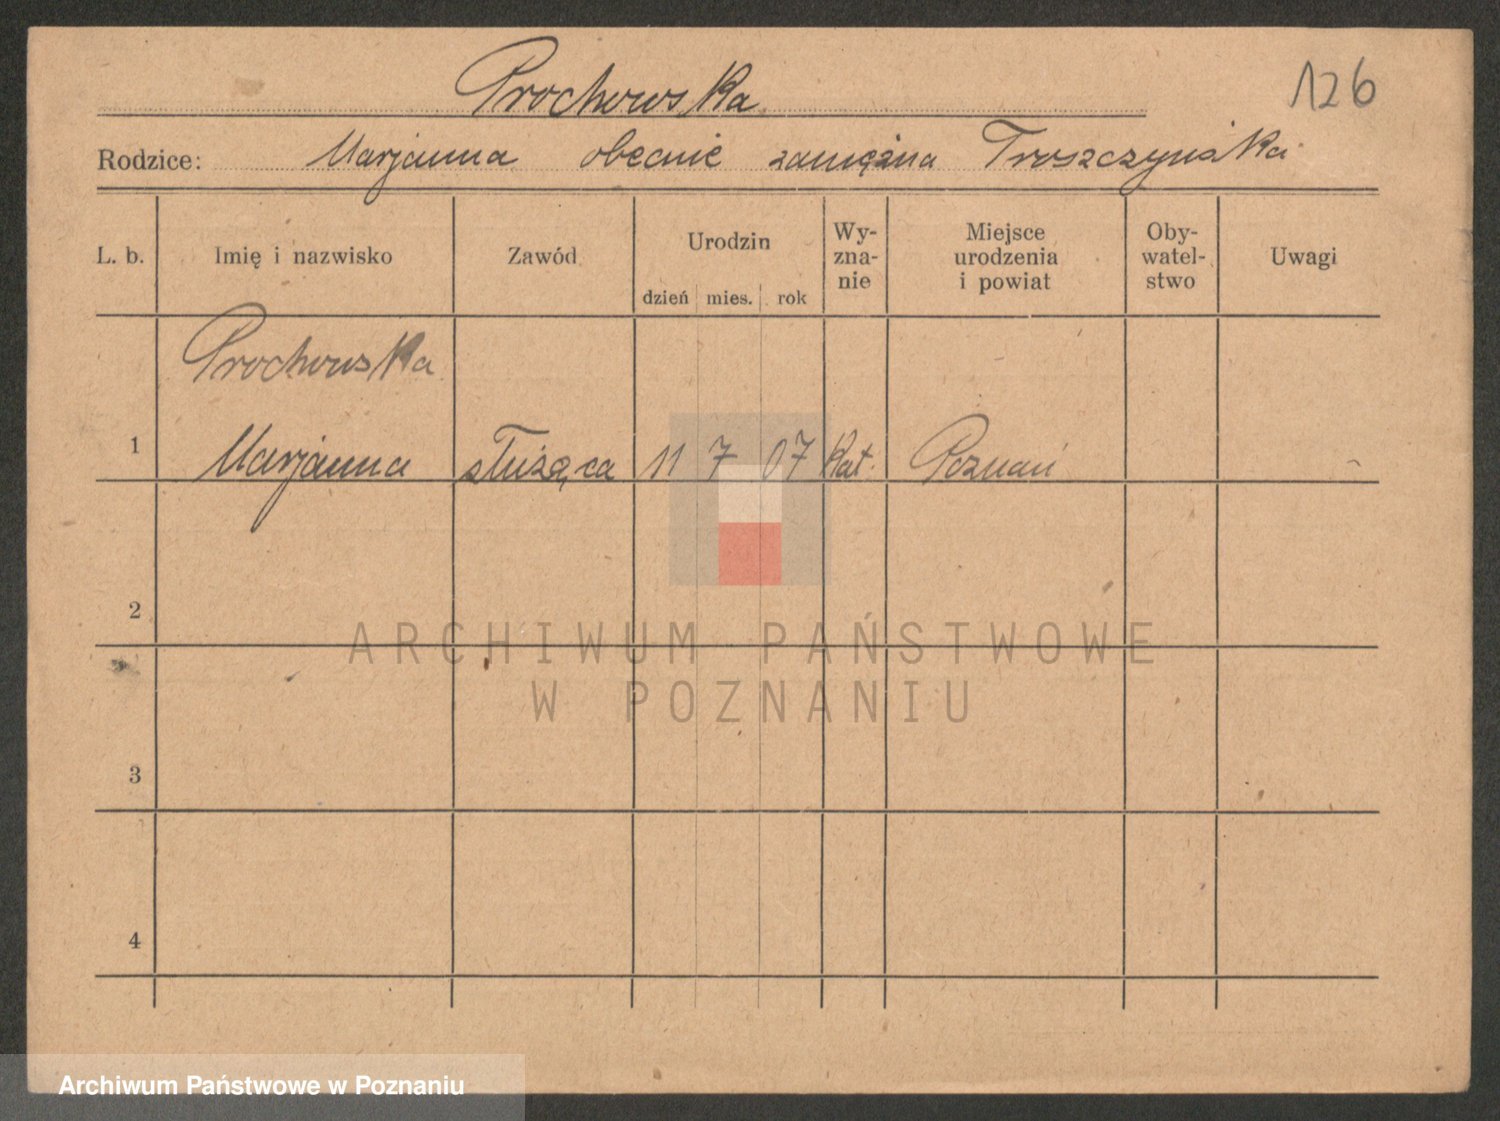 Prochowska
126
Rodzice: Marjanna obecnie zamężna Troszczyńska
L. b. Imię i nazwisko Zawód Urodzin dzień mies. rok Wy-zna-nie Miejsce urodzenia i powiat Oby-watel-stwo Uwagi
Prochowska
1 Marjanna służąca 11 7 07 kat. Poznań
2
ARCHIWUM PAŃSTWOWE
W POZNANIU
3
4
Archiwum Państwowe w Poznaniu